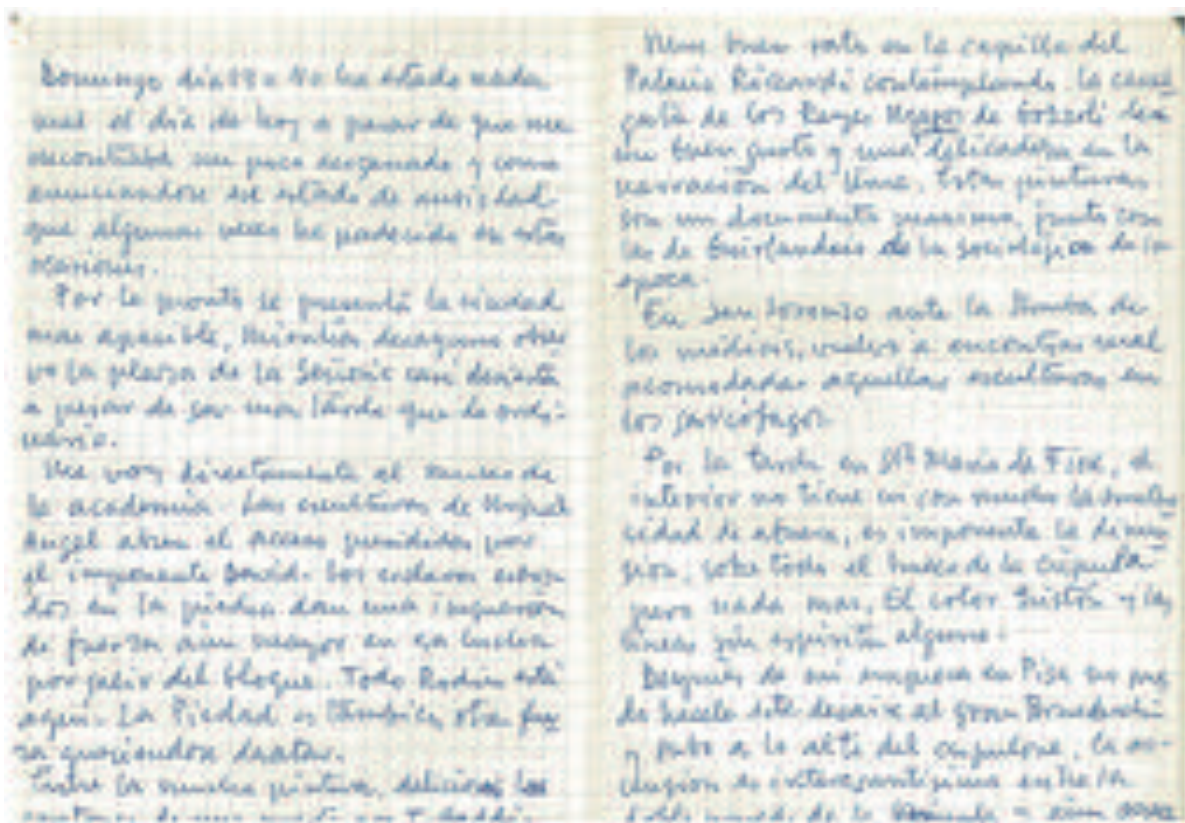 Domingo día 19 = No ha estado nada
mal el día de hoy a pesar de que me
encontraba un poco desganado y como
anunciandose ese estado de ansiedad
que algunas veces he padecido en estas
ocasiones.
Por lo pronto se presentó la ciudad
mas apacible, mientras desayuno obser
vo la plaza de la Señoria casi desierta
a pesar de ser mas tarde que de ordi-
nario.
Me voy directamente al museo de
la academia. Las esculturas de Miguel
Angel abren el acceso presididas por
el imponente David. Los esclavos
en la piedra dan una impresion
de fuerza aun mayor en su lucha
por salir del bloque. Todo Rodin está
aqui. La Piedad es tambien otra fuer
za queriendose desatar.
Entre la mucha pintura, deliciosos los
de una
buen rato en la capilla del
Palacio Riccardi contemplando la cabal
gata de los Reyes Magos de Gozzoli
un buen gusto y una delicadeza en la
narracion del tema. Estas pinturas
son un documento maximo, junto con
las de Guirlandaio de la sociologia de la
epoca.
En San Lorenzo ante la tumba de
los médicis, vuelvo a encontrar mal
acomodadas aquellas esculturas en
los sarcófagos.
Por la tarde en Stª Maria de Fiore, el
interior no tiene ni con mucho la
de afuera, es imponente la dimen
sion, sobre todo el hueco de la cúpula
pero nada mas. El color tristón y las
lineas sin espiritu alguno.
Después de mi empresa en Pisa no pue
do hacerle este desaire al gran Brunelleschi
y subo a lo alto del cupulone, la as-
cension es interesantisima entre la
doble pared de la